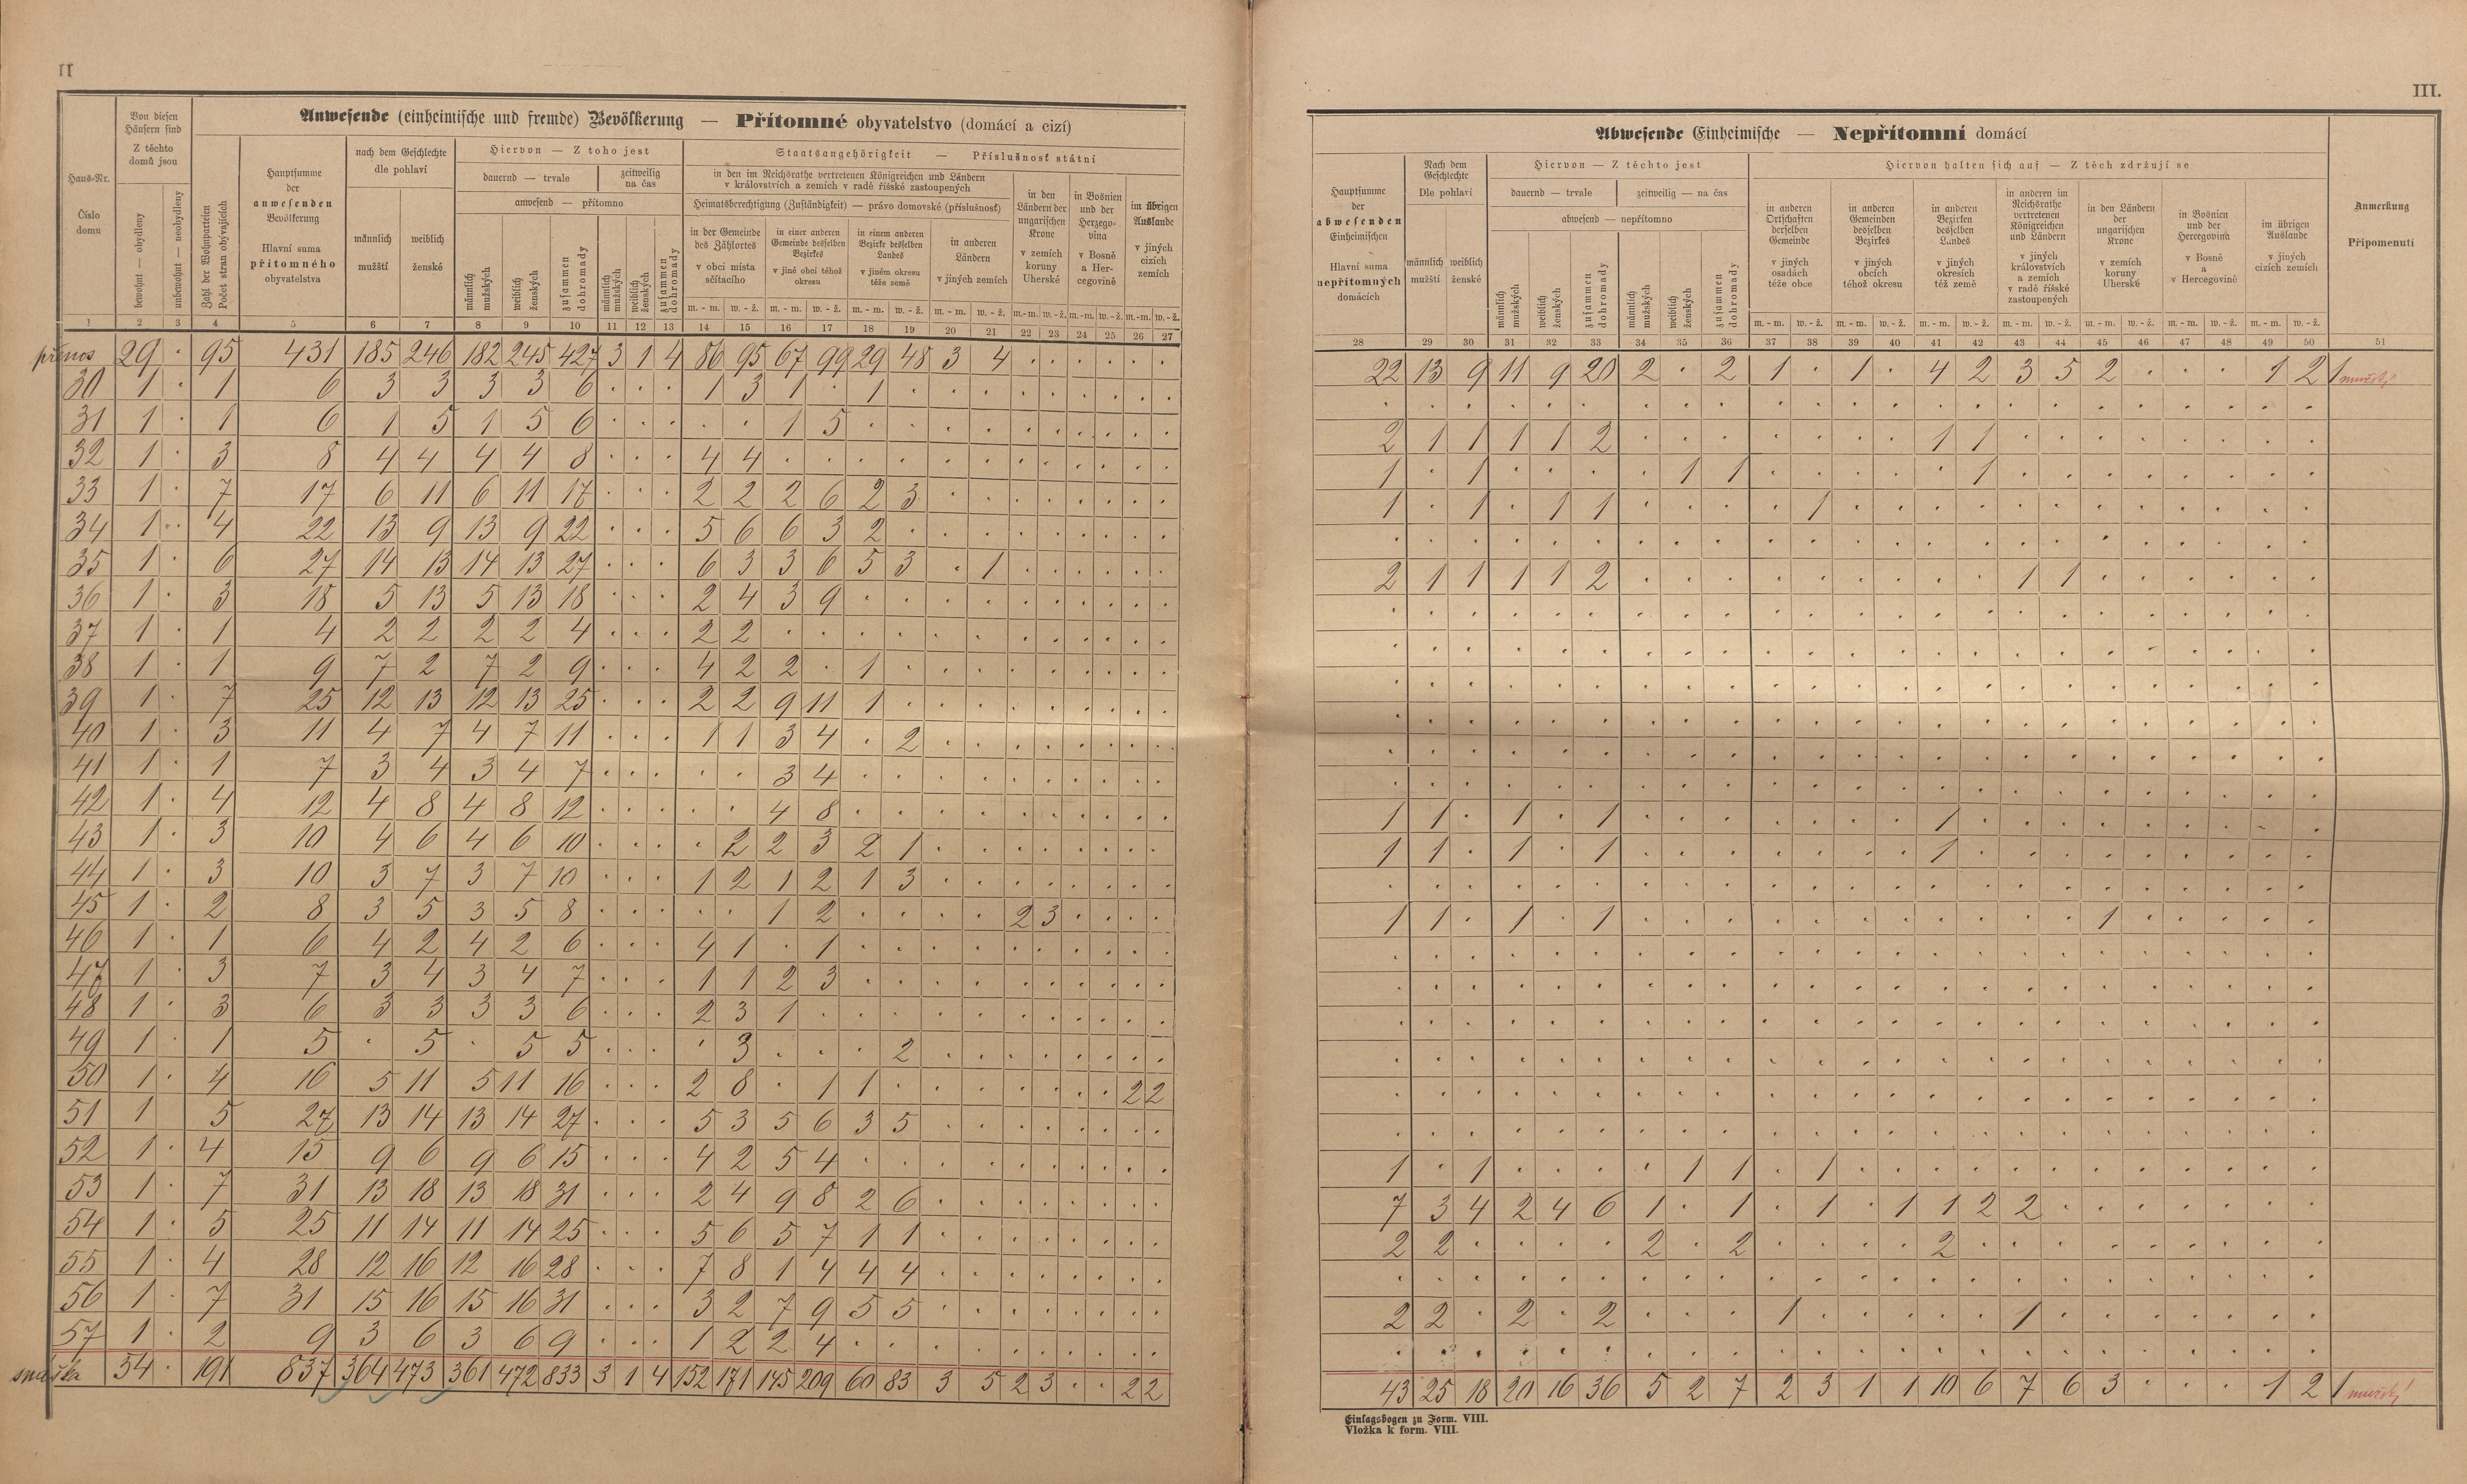 II
III.
Anwesende (einheimische und fremde) Bevölkerung — Přítomné obyvatelstvo (domácí a cizí)
Haus-Nr.
Číslo domu
Von diesen Häusern sind
Z těchto domů jsou
bewohnt — obydleny
unbewohnt — neobydleny
Zahl der Wohnparteien
Počet stran obývajících
Hauptsumme der anwesenden Bevölkerung
Hlavní suma přítomného obyvatelstva
nach dem Geschlechte
dle pohlaví
männlich mužští
weiblich ženské
Hiervon — Z toho jest
dauernd — trvale
zeitweilig na čas
anwesend — přítomno
männlich mužských
weiblich ženských
zusammen dohromady
männlich mužských
weiblich ženských
zusammen dohromady
Staatsangehörigkeit — Příslušnosť státní
in den im Reichsrathe vertretenen Königreichen und Ländern
v královstvích a zemích v radě říšské zastoupených
Heimatsberechtigung (Zuständigkeit) — právo domovské (příslušnosť)
in der Gemeinde des Zählortes
v obci místa sčítacího
in einer anderen Gemeinde desselben Bezirkes
v jiné obci téhož okresu
in einem anderen Bezirke desselben Landes
v jiném okresu téže země
in anderen Ländern
v jiných zemích
in den Ländern der ungarischen Krone
v zemích koruny Uherské
in Bosnien und der Herzegovina
v Bosně a Hercegovině
im übrigen Auslande
v jiných cizích zemích
m. - m. w. - ž. m. - m. w. - ž. m. - m. w. - ž. m. - m. w. - ž. m.-m. w.-ž. m.-m. w.-ž. m.-m. w.-ž.
1 2 3 4 5 6 7 8 9 10 11 12 13 14 15 16 17 18 19 20 21 22 23 24 25 26 27
přenos 29 · 95 431 185 246 182 245 427 3 1 4 86 95 67 99 29 48 3 4 · · · · · ·
30 1 · 1 6 3 3 3 3 6 · · · 1 3 1 · 1 · · · · · · · · ·
31 1 · 1 6 1 5 1 5 6 · · · · · 1 5 · · · · · · · · · ·
32 1 · 3 8 4 4 4 4 8 · · · 4 4 · · · · · · · · · · · ·
33 1 · 7 17 6 11 6 11 17 · · · 2 2 2 6 2 3 · · · · · · · ·
34 1 · 4 22 13 9 13 9 22 · · · 5 6 6 3 2 · · · · · · · · ·
35 1 · 6 27 14 13 14 13 27 · · · 6 3 3 6 5 3 · 1 · · · · · ·
36 1 · 3 18 5 13 5 13 18 · · · 2 4 3 9 · · · · · · · · · ·
37 1 · 1 4 2 2 2 2 4 · · · 2 2 · · · · · · · · · · · ·
38 1 · 1 9 7 2 7 2 9 · · · 4 2 2 · 1 · · · · · · · · ·
39 1 · 7 25 12 13 12 13 25 · · · 2 2 9 11 1 · · · · · · · · ·
40 1 · 3 11 4 7 4 7 11 · · · 1 1 3 4 · 2 · · · · · · · ·
41 1 · 1 7 3 4 3 4 7 · · · · · 3 4 · · · · · · · · · ·
42 1 · 4 12 4 8 4 8 12 · · · · · 4 8 · · · · · · · · · ·
43 1 · 3 10 4 6 4 6 10 · · · · 2 2 3 2 1 · · · · · · · ·
44 1 · 3 10 3 7 3 7 10 · · · 1 2 1 2 1 3 · · · · · · · ·
45 1 · 2 8 3 5 3 5 8 · · · · · 1 2 · · · · 2 3 · · · ·
46 1 · 1 6 4 2 4 2 6 · · · 4 1 · 1 · · · · · · · · · ·
47 1 · 3 7 3 4 3 4 7 · · · 1 1 2 3 · · · · · · · · · ·
48 1 · 3 6 3 3 3 3 6 · · · 2 3 1 · · · · · · · · · · ·
49 1 · 1 5 · 5 · 5 5 · · · · 3 · · · 2 · · · · · · · ·
50 1 · 4 16 5 11 5 11 16 · · · 2 8 · 1 1 · · · · · · · 2 2
51 1 5 27 13 14 13 14 27 · · · 5 3 5 6 3 5 · · · · · · · ·
52 1 · 4 15 9 6 9 6 15 · · · 4 2 5 4 · · · · · · · · · ·
53 1 · 7 31 13 18 13 18 31 · · · 2 4 9 8 2 6 · · · · · · · ·
54 1 · 5 25 11 14 11 14 25 · · · 5 6 5 7 1 1 · · · · · · · ·
55 1 · 4 28 12 16 12 16 28 · · · 7 8 1 4 4 4 · · · · · · · ·
56 1 · 7 31 15 16 15 16 31 · · · 3 2 7 9 5 5 · · · · · · · ·
57 1 · 2 9 3 6 3 6 9 · · · 1 2 2 4 · · · · · · · · · ·
snáška 54 · 191 837 364 473 361 472 833 3 1 4 152 171 145 209 60 83 3 5 2 3 · · 2 2
Abwesende Einheimische — Nepřítomní domácí
Hauptsumme der abwesenden Einheimischen
Hlavní suma nepřítomných domácích
Nach dem Geschlechte
Dle pohlaví
männlich mužští
weiblich ženské
Hiervon — Z těchto jest
dauernd — trvale
zeitweilig — na čas
abwesend — nepřítomno
männlich mužských
weiblich ženských
zusammen dohromady
männlich mužských
weiblich ženských
zusammen dohromady
Hiervon halten sich auf — Z těch zdržují se
in anderen Ortschaften derselben Gemeinde
v jiných osadách téže obce
in anderen Gemeinden desselben Bezirkes
v jiných obcích téhož okresu
in anderen Bezirken desselben Landes
v jiných okresích též země
in anderen im Reichsrathe vertretenen Königreichen und Ländern
v jiných královstvích a zemích v radě říšské zastoupených
in den Ländern der ungarischen Krone
v zemích koruny Uherské
in Bosnien und der Hercegovina
v Bosně a v Hercegovině
im übrigen Auslande
v jiných cizích zemích
Anmerkung
Připomenutí
m. - m. w. - ž. m. - m. w. - ž. m. - m. w. - ž. m. - m. w. - ž. m. - m. w. - ž. m. - m. w. - ž. m. - m. w. - ž.
28 29 30 31 32 33 34 35 36 37 38 39 40 41 42 43 44 45 46 47 48 49 50 51
22 13 9 11 9 20 2 · 2 1 · 1 · 4 2 3 5 2 · · · 1 2 1
· · · · · · · · · · · · · · · · · · · · · · ·
2 1 1 1 1 2 · · · · · · · 1 1 · · · · · · · ·
1 · 1 · · · · 1 1 · · · · · 1 · · · · · · · ·
1 · 1 · 1 1 · · · · 1 · · · · · · · · · · · ·
· · · · · · · · · · · · · · · · · · · · · · ·
2 1 1 1 1 2 · · · · · · · · · 1 1 · · · · · ·
· · · · · · · · · · · · · · · · · · · · · · ·
· · · · · · · · · · · · · · · · · · · · · · ·
· · · · · · · · · · · · · · · · · · · · · · ·
· · · · · · · · · · · · · · · · · · · · · · ·
· · · · · · · · · · · · · · · · · · · · · · ·
· · · · · · · · · · · · · · · · · · · · · · ·
1 1 · 1 · 1 · · · · · · · 1 · · · · · · · · ·
1 1 · 1 · 1 · · · · · · · 1 · · · · · · · · ·
· · · · · · · · · · · · · · · · · · · · · · ·
1 1 · 1 · 1 · · · · · · · · · · · 1 · · · · ·
· · · · · · · · · · · · · · · · · · · · · · ·
· · · · · · · · · · · · · · · · · · · · · · ·
· · · · · · · · · · · · · · · · · · · · · · ·
· · · · · · · · · · · · · · · · · · · · · · ·
· · · · · · · · · · · · · · · · · · · · · · ·
· · · · · · · · · · · · · · · · · · · · · · ·
1 · 1 · · · · 1 1 · 1 · · · · · · · · · · · ·
7 3 4 2 4 6 1 · 1 · 1 · 1 1 2 2 · · · · · · ·
2 2 · · · · 2 · 2 · · · · 2 · · · · · · · · ·
· · · · · · · · · · · · · · · · · · · · · · ·
2 2 · 2 · 2 · · · 1 · · · · · 1 · · · · · · ·
· · · · · · · · · · · · · · · · · · · · · · ·
43 25 18 20 16 36 5 2 7 2 3 1 1 10 6 7 6 3 · · · 1 2 1
Einlagsbogen zu Form. VIII.
Vložka k form. VIII.